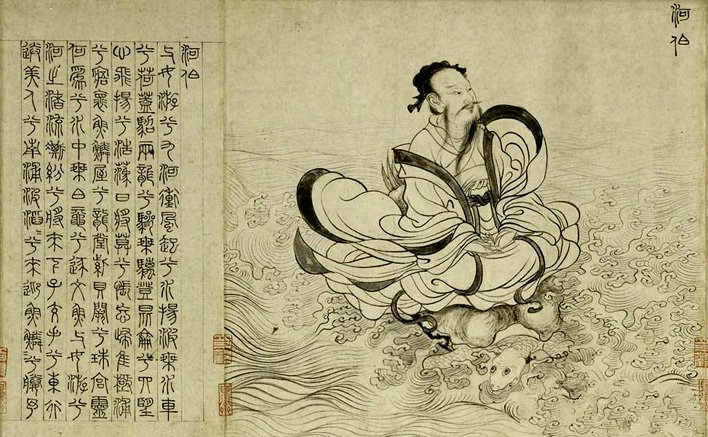 河伯
河伯
与女游兮九河衝風起兮水揚波乘水車
兮荷蓋駕兩龍兮驂螭登昆侖兮四望
心飛揚兮浩蕩日將莫兮悵忘歸惟極浦
兮寤懷魚鱗屋兮龍堂紫貝闕兮珠宮靈
何為兮水中乘白黿兮逐文魚与女游兮
河之渚流澌紛兮將來下子交手兮東行
送美人兮南浦波滔滔兮來迎魚鱗鱗兮媵予